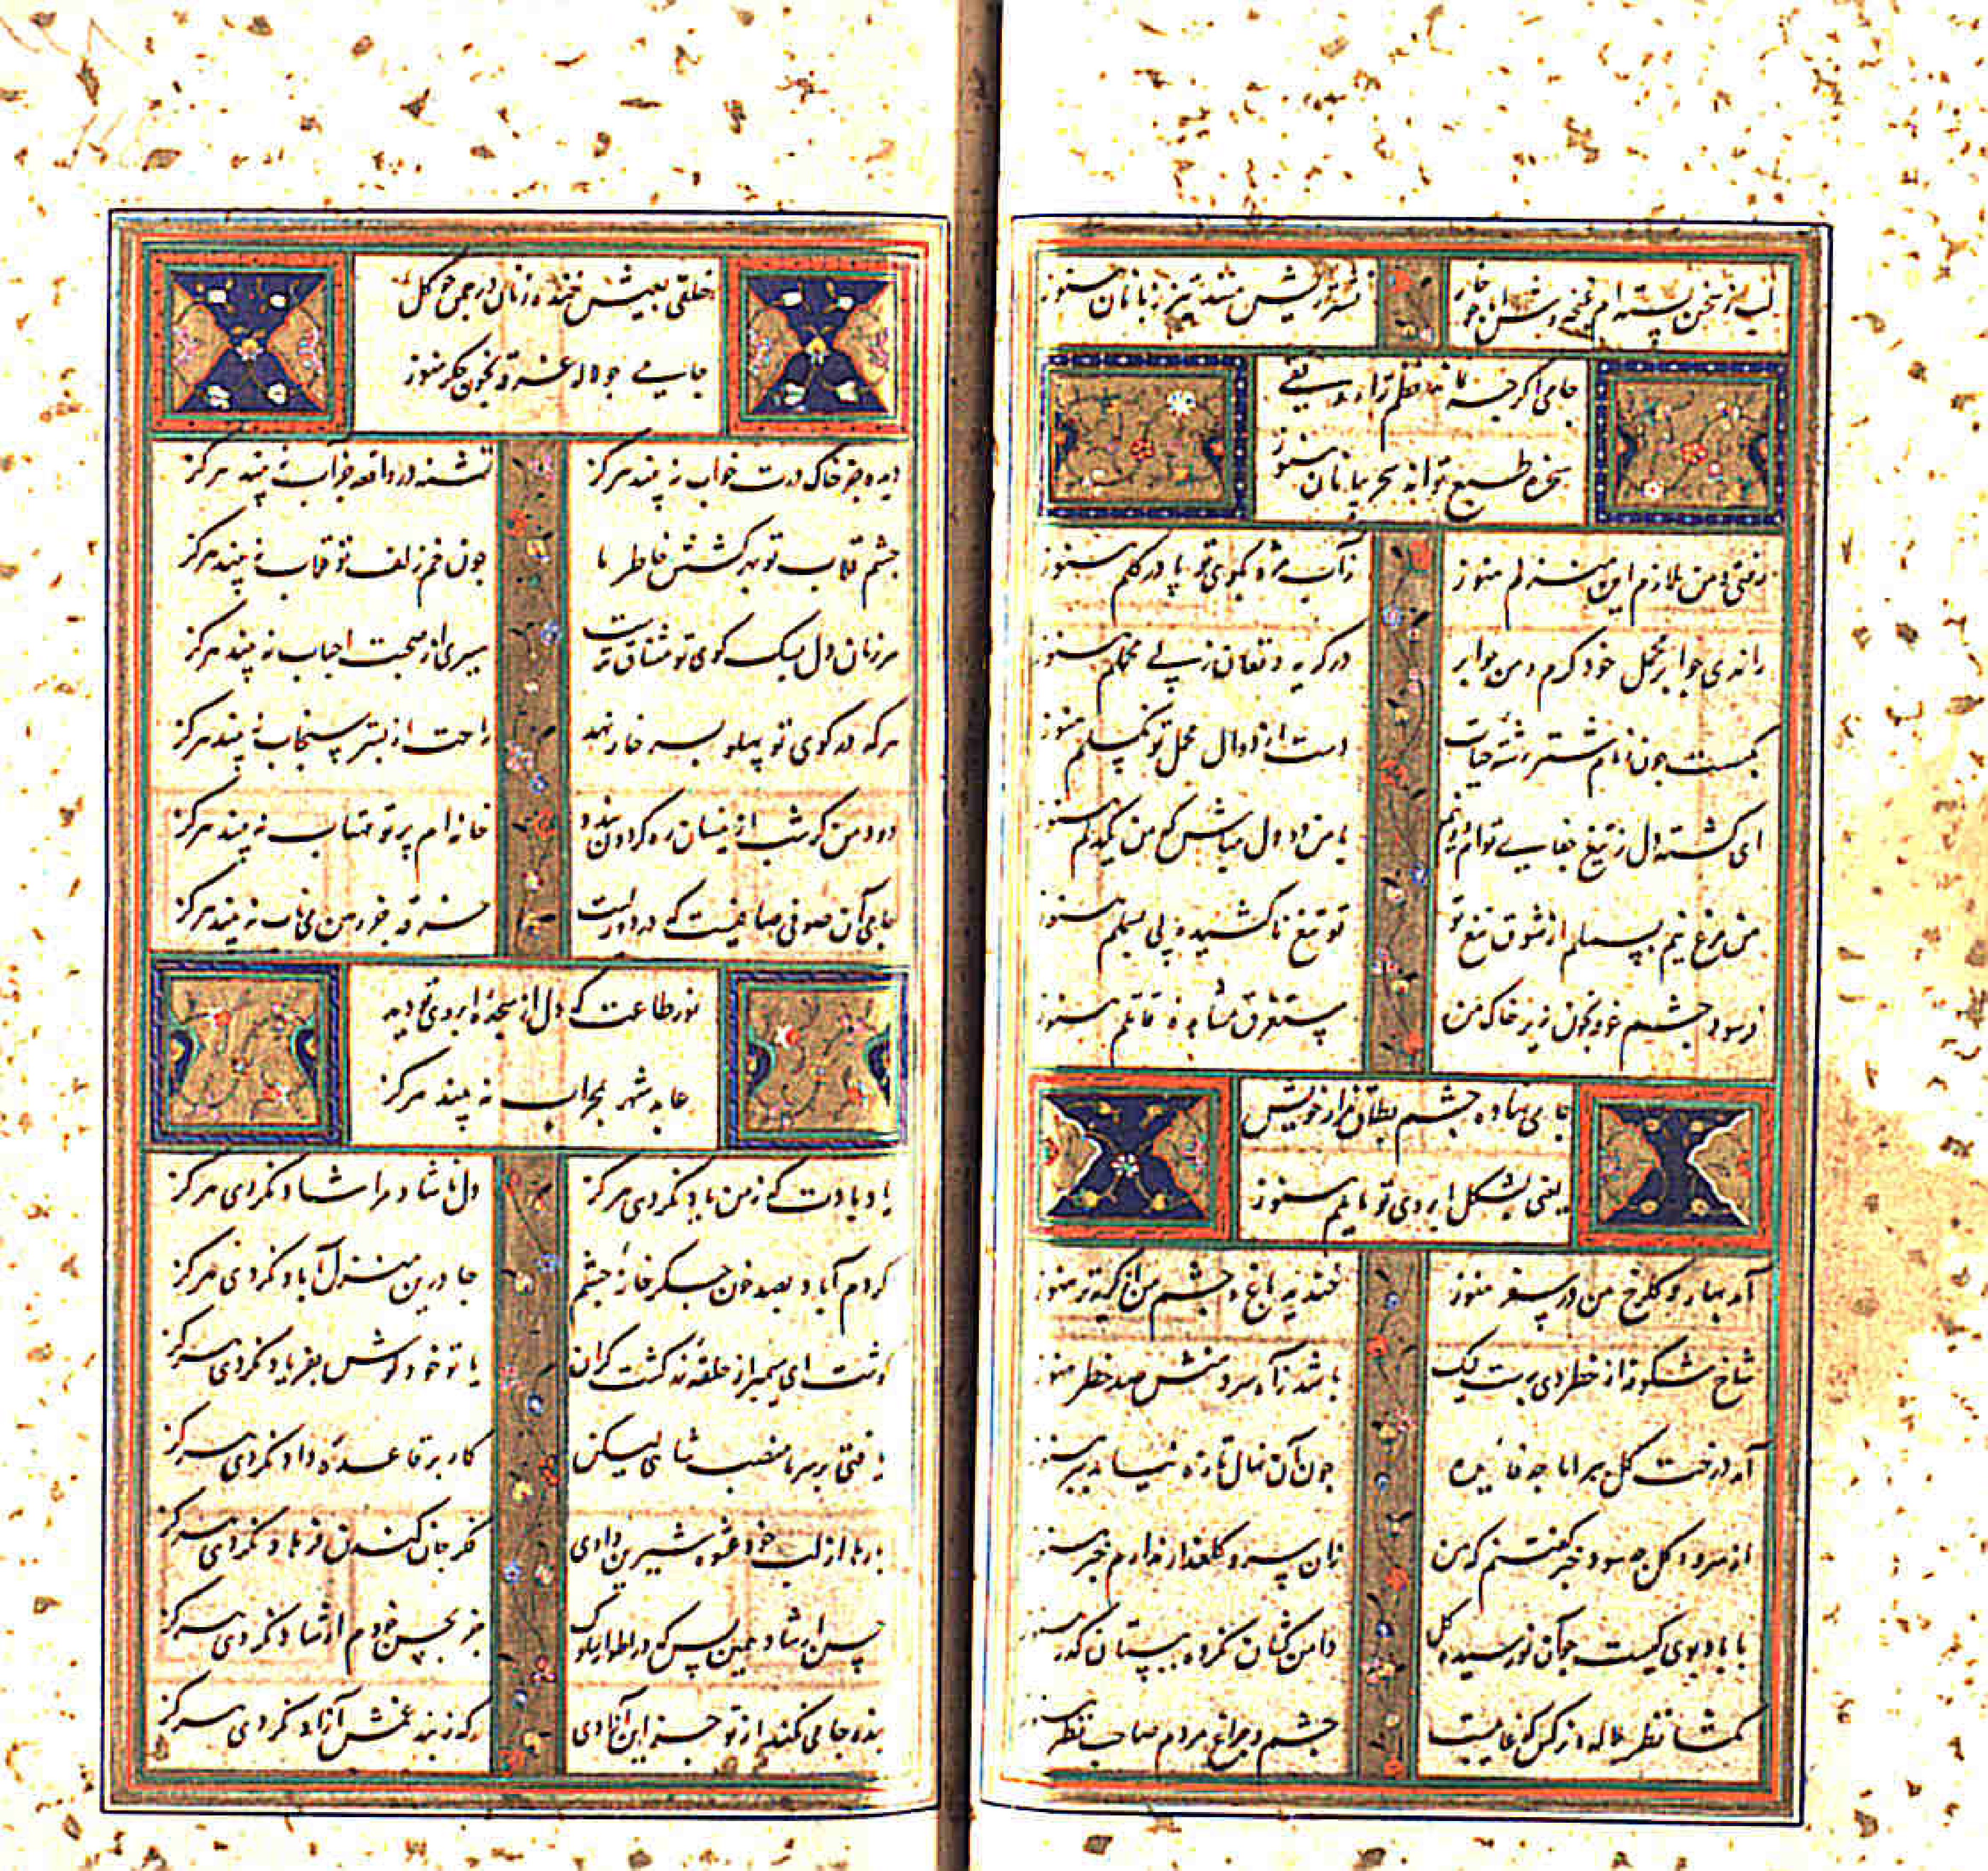 لب از سخن بسته ام غنچه وش اما چو خار
تشنه ازیشن مشد تیز زبانان هنوز
جامی اگر چه نماند نظم ترا رونقی
سخره طبع تواند سحر بیانان هنوز
رفتی و من ملازم این منزلم هنوز
ز آب مژه بکوی تو پا در کلم هنوز
راندی جو ابر محمل خود کرم و من جو ابر
در کریه و فغان ز پی محملم هنوز
بکسست جون زمام شتر رشته حیات
دست از دوال محمل تو نکسلم هنوز
ای کشته دل ز تیغ جفای توام دو نیم
با من دو دل مباش که من یکدلم هنوز
من مرغ نیم بسملم از شوق تیغ تو
تو تیغ ناکشیده پی بسملم هنوز
فرسود جشم غرقه بخون زیر خاک و من
مستغرق مشاهده قاتلم هنوز
جامی نهاده جشم بطاق مزار خویش
یعنی بشکل ابروی تو مایلم هنوز
آمد بهار و کلرخ من در سفر هنوز
خندید باغ و جشم من از کریه تر هنوز
شاخ شکوفه از خطر دی برست لیک
باشد ز آه سرد منش صد خطر هنوز
آمد درخت کل ببر اما جه فایده
جون آن نهال تازه نیامد ببر هنوز
از سرو و کل جه سود خبر کفتنم که من
زان سرو کلعذار ندارم خبر هنوز
با باد بوی کیست جو آن نورسیده کل
دامن کشان نکرده ببستان کذر هنوز
مکشا نظر بلاله و نرکس که غایبست
جشم و جراغ مردم صاحب نظر هنوز
خلقی بعیش خنده زنان در جمن جو کل
جامی جو لاله غرقه بخون جکر هنوز
دیده جز خاک درت خواب نه بیند هرکز
تشنه در واقعه جز آب نه بیند هرکز
جشم قلاب تو بهر کشش خاطر ما
جون خم زلف تو قلاب نه بیند هرکز
مرزمان دل بسک کوی تو مشتاق ترست
سیری از صحبت احباب نه بیند هرکز
هرکه در کوی تو پهلو بسر خار نهد
راحت از بستر سنجاب نه بیند هرکز
دود من کر شب ازینسان ره کردون بندد
خانه ام پرتو مهتاب نه بیند هرکز
جامی آن صوفی صافیست که در دور لبت
خرقه جز در من می ناب نه بیند هرکز
نور طاعت که دل از سجده ابروی تو دید
عابد شهر بمحراب نه بیند هرکز
یاد بادت که ز من یاد نکردی هرکز
دل ناشاد مرا شاد نکردی هرکز
کردم آباد بصد خون جکر خانه جشم
جا درین منزل آباد نکردی هرکز
کوشت ای سیمبر از حلقه نه کشت کران
یا تو خود کوش بفریاد نکردی هرکز
یافتی بر سر ما منصب شاهی لیکن
کار بر قاعده داد نکردی هرکز
بارها از لب خود عشوه شیرین دادی
فکر جان کندن فرهاد نکردی هرکز
حسن ارشاد همین بس که در اطوار سلوک
جز بحسن خودم ارشاد نکردی هرکز
بنده جامی نکند از تو جز این آزادی
که ز بند غمش آزاد نکردی هرکز